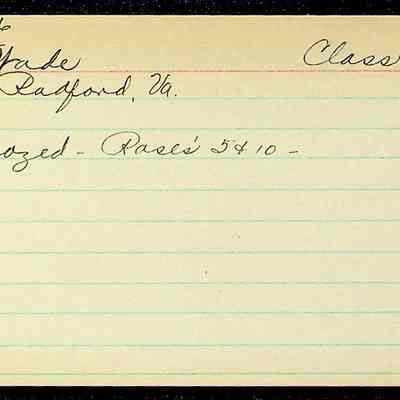 Wade Class
Radford, Va.
ozed - Roses' 5 & 10 -